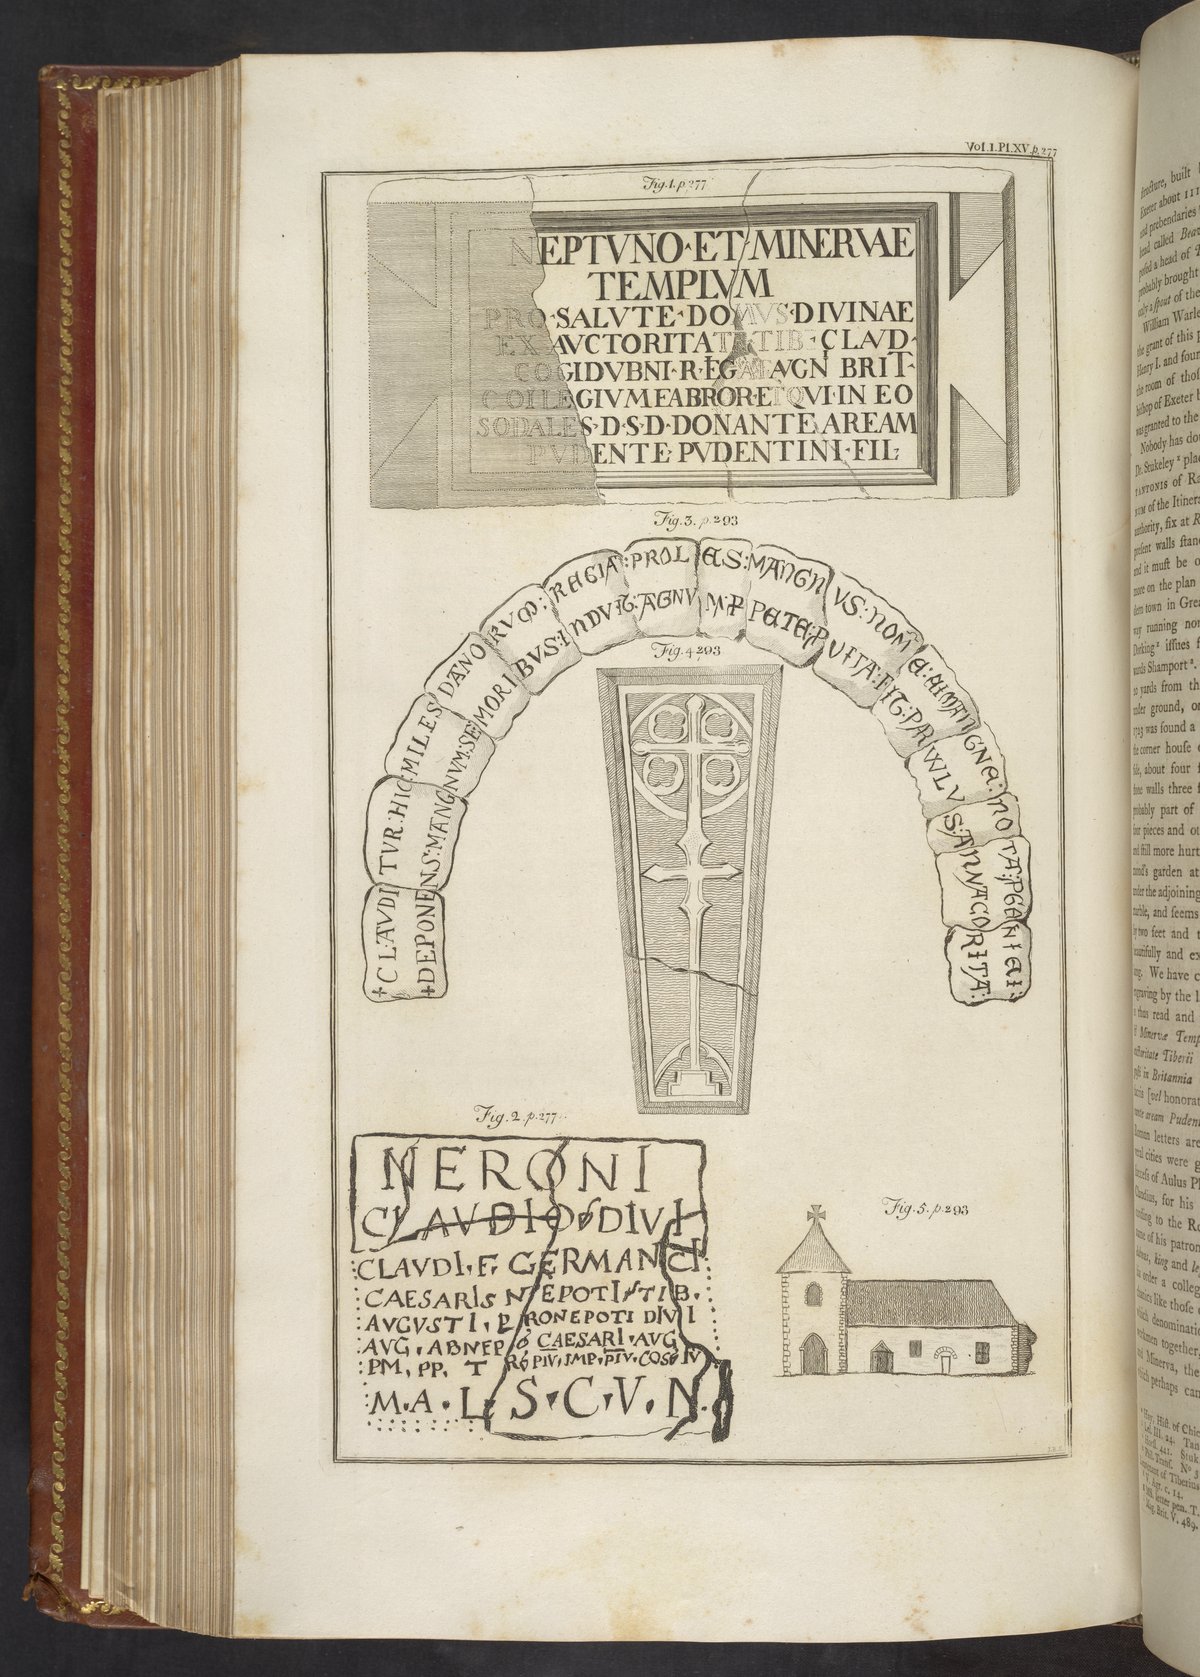 Vol.I.Pl.XV.p.277
Fig.1.p.277
NEPTVNO·ET·MINERVAE
TEMPLVM
PRO·SALVTE·DOMVS·DIVINAE
EX AVCTORITATE·TIB·CLAVD·
COGIDVBNI·R·LEGAT·AVGN BRIT·
COLLEGIVM FABROR·ETQVI·IN EO
SODALES·D·S·D·DONANTE AREAM
PVDENTE·PVDENTINI·FIL·
Fig.3.p.293
+CLAVDITVR:HIC:MILES DANORVM:REGIA:PROLES:MANGNVS:NOMEN:EI:MANGNE:NOTA:PGENIEI:
+DEPONENS:MANGNVM:SE MORIBVS:INDVIT:AGNVM:P PETE:PVITA:FIT:PARWLVS:ANACORITA:
Fig.4.293
Fig.2.p.277
NERONI
CLAVDIO DIVI
CLAVDI·F·GERMANCI
CAESARIS NEPOTI TIB.
AVGVSTI, PRONEPOTI DIVI
AVG. ABNEP CAESARI, AVG
PM, PP. T PIV, IMP, PIV, COS IV
M.A.L S,C,V,N.
Fig.5.p.293
structure, built
Exeter about
and prebendaries
head called Bea
a head of
probably brought
only a spout of the
William Warle
the grant of this
Henry I. and foun
the room of thos
bishop of Exeter
was granted to the
Nobody has do
Dr. Stukeley plac
of Ra
of the Itinera
authority, fix at R
present walls stan
and it must be o
more on the plan
town in Grea
way running nor
Dorking issues
wards Shamport.
yards from th
under ground, or
was found a
the corner house
side, about four
stone walls three
probably part of
four pieces and ot
and still more hurt
garden at
under the adjoining
marble, and seems
by two feet and
beautifully and ex
long. We have
engraving by the
thus read and
Minervæ Temp
Tiberii
in Britannia
[vel honorat
aream Pudent
Roman letters are
cities were g
success of Aulus Pl
Claudius, for his
according to the Ro
name of his patron
king and le
in order a college
like those
which denominatio
together,
Minerva, the
which perhaps can
Hist. of Chic